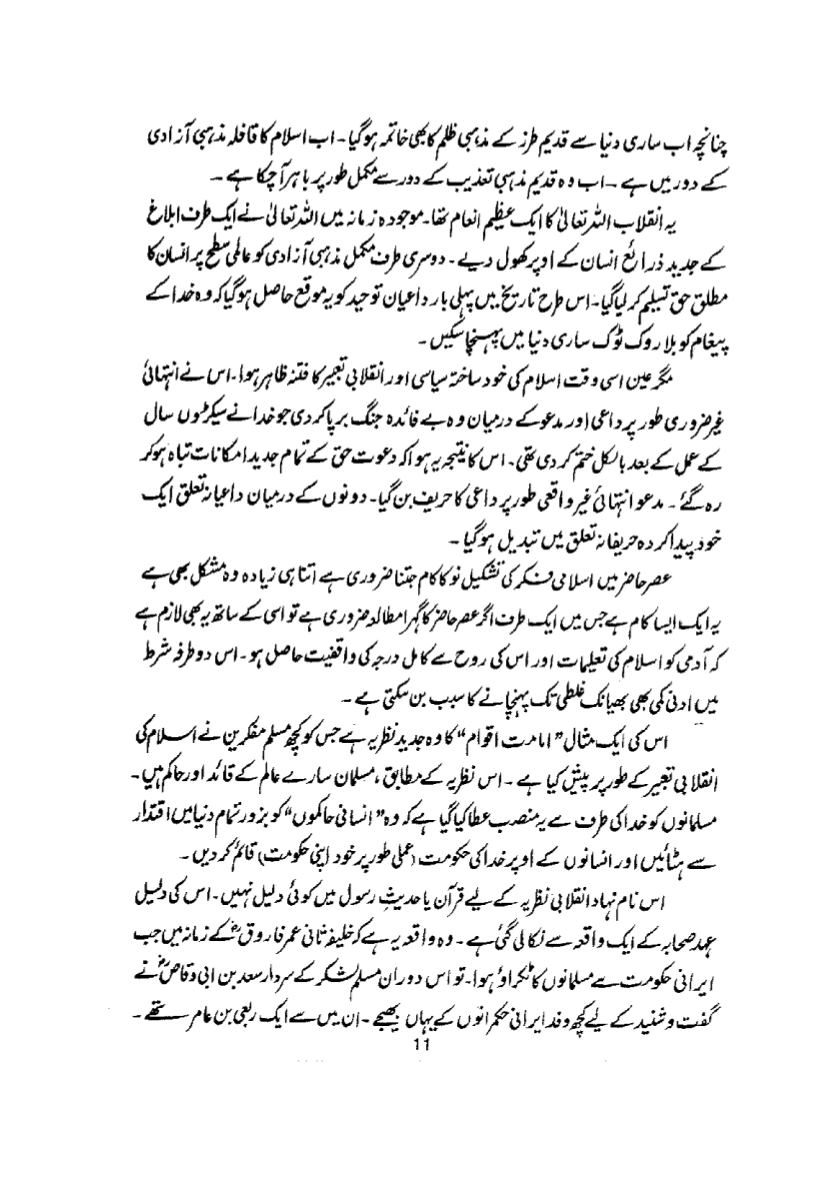 چنانچہ اب ساری دنیا سے قدیم طرز کے مذہبی ظلم کا بھی خاتمہ ہوگیا۔ اب اسلام کا قافلہ مذہبی آزادی
کے دور میں ہے ۔ اب وہ قدیم مذہبی تعذیب کے دور سے مکمل طور پر باہر آچکا ہے ۔
یہ انقلاب اللہ تعالیٰ کا ایک عظیم انعام تھا۔ موجودہ زمانہ میں اللہ تعالیٰ نے ایک طرف ابلاغ
کے جدید ذرائع انسان کے اوپر کھول دیے ۔ دوسری طرف مکمل مذہبی آزادی کو عالمی سطح پر انسان کا
مطلق حق تسلیم کر لیا گیا۔ اس طرح تاریخ میں پہلی بار داعیان توحید کو یہ موقع حاصل ہوگیا کہ وہ خدا کے
پیغام کو بلا روک ٹوک ساری دنیا میں پہنچا سکیں ۔
مگر عین اسی وقت اسلام کی خود ساختہ سیاسی اور انقلابی تعبیر کا فتنہ ظاہر ہوا۔ اس نے انتہائی
غیر ضروری طور پر داعی اور مدعو کے درمیان وہ بے فائدہ جنگ برپا کر دی جو خدا نے سیکڑوں سال
کے عمل کے بعد بالکل ختم کر دی تھی ۔ اس کا نتیجہ یہ ہوا کہ دعوت حق کے تمام جدید امکانات تباہ ہو کر
رہ گئے ۔ مدعو انتہائی غیر واقعی طور پر داعی کا حریف بن گیا۔ دونوں کے درمیان داعیانہ تعلق ایک
خود پیدا کردہ حریفانہ تعلق میں تبدیل ہو گیا ۔
عصر حاضر میں اسلامی فکر کی تشکیل نو کا کام جتنا ضروری ہے اتنا ہی زیادہ وہ مشکل بھی ہے
یہ ایک ایسا کام ہے جس میں ایک طرف اگر عصر حاضر کا گہرا مطالعہ ضروری ہے تو اسی کے ساتھ یہ بھی لازم ہے
کہ آدمی کو اسلام کی تعلیمات اور اس کی روح سے کامل درجہ کی واقفیت حاصل ہو ۔ اس دو طرفہ شرط
میں ادنیٰ کمی بھی بھیانک غلطی تک پہنچانے کا سبب بن سکتی ہے ۔
اس کی ایک مثال "امامت اقوام" کا وہ جدید نظریہ ہے جس کو کچھ مسلم مفکرین نے اسلام کی
انقلابی تعبیر کے طور پر پیش کیا ہے ۔ اس نظریہ کے مطابق ، مسلمان سارے عالم کے قائد اور حاکم ہیں ۔
مسلمانوں کو خدا کی طرف سے یہ منصب عطا کیا گیا ہے کہ وہ "انسانی حاکموں" کو بزور تمام دنیا میں اقتدار
سے ہٹائیں اور انسانوں کے اوپر خدا کی حکومت (عملی طور پر خود اپنی حکومت) قائم کر دیں ۔
اس نام نہاد انقلابی نظریہ کے لیے قرآن یا حدیثِ رسول میں کوئی دلیل نہیں ۔ اس کی دلیل
عہد صحابہ کے ایک واقعہ سے نکالی گئی ہے ۔ وہ واقعہ یہ ہے کہ خلیفہ ثانی عمر فاروقؓ کے زمانہ میں جب
ایرانی حکومت سے مسلمانوں کا ٹکراؤ ہوا۔ تو اس دوران مسلم لشکر کے سردار سعد بن ابی وقاصؓ نے
گفت و شنید کے لیے کچھ وفد ایرانی حکمرانوں کے یہاں بھیجے ۔ ان میں سے ایک ربعی بن عامر تھے ۔
11